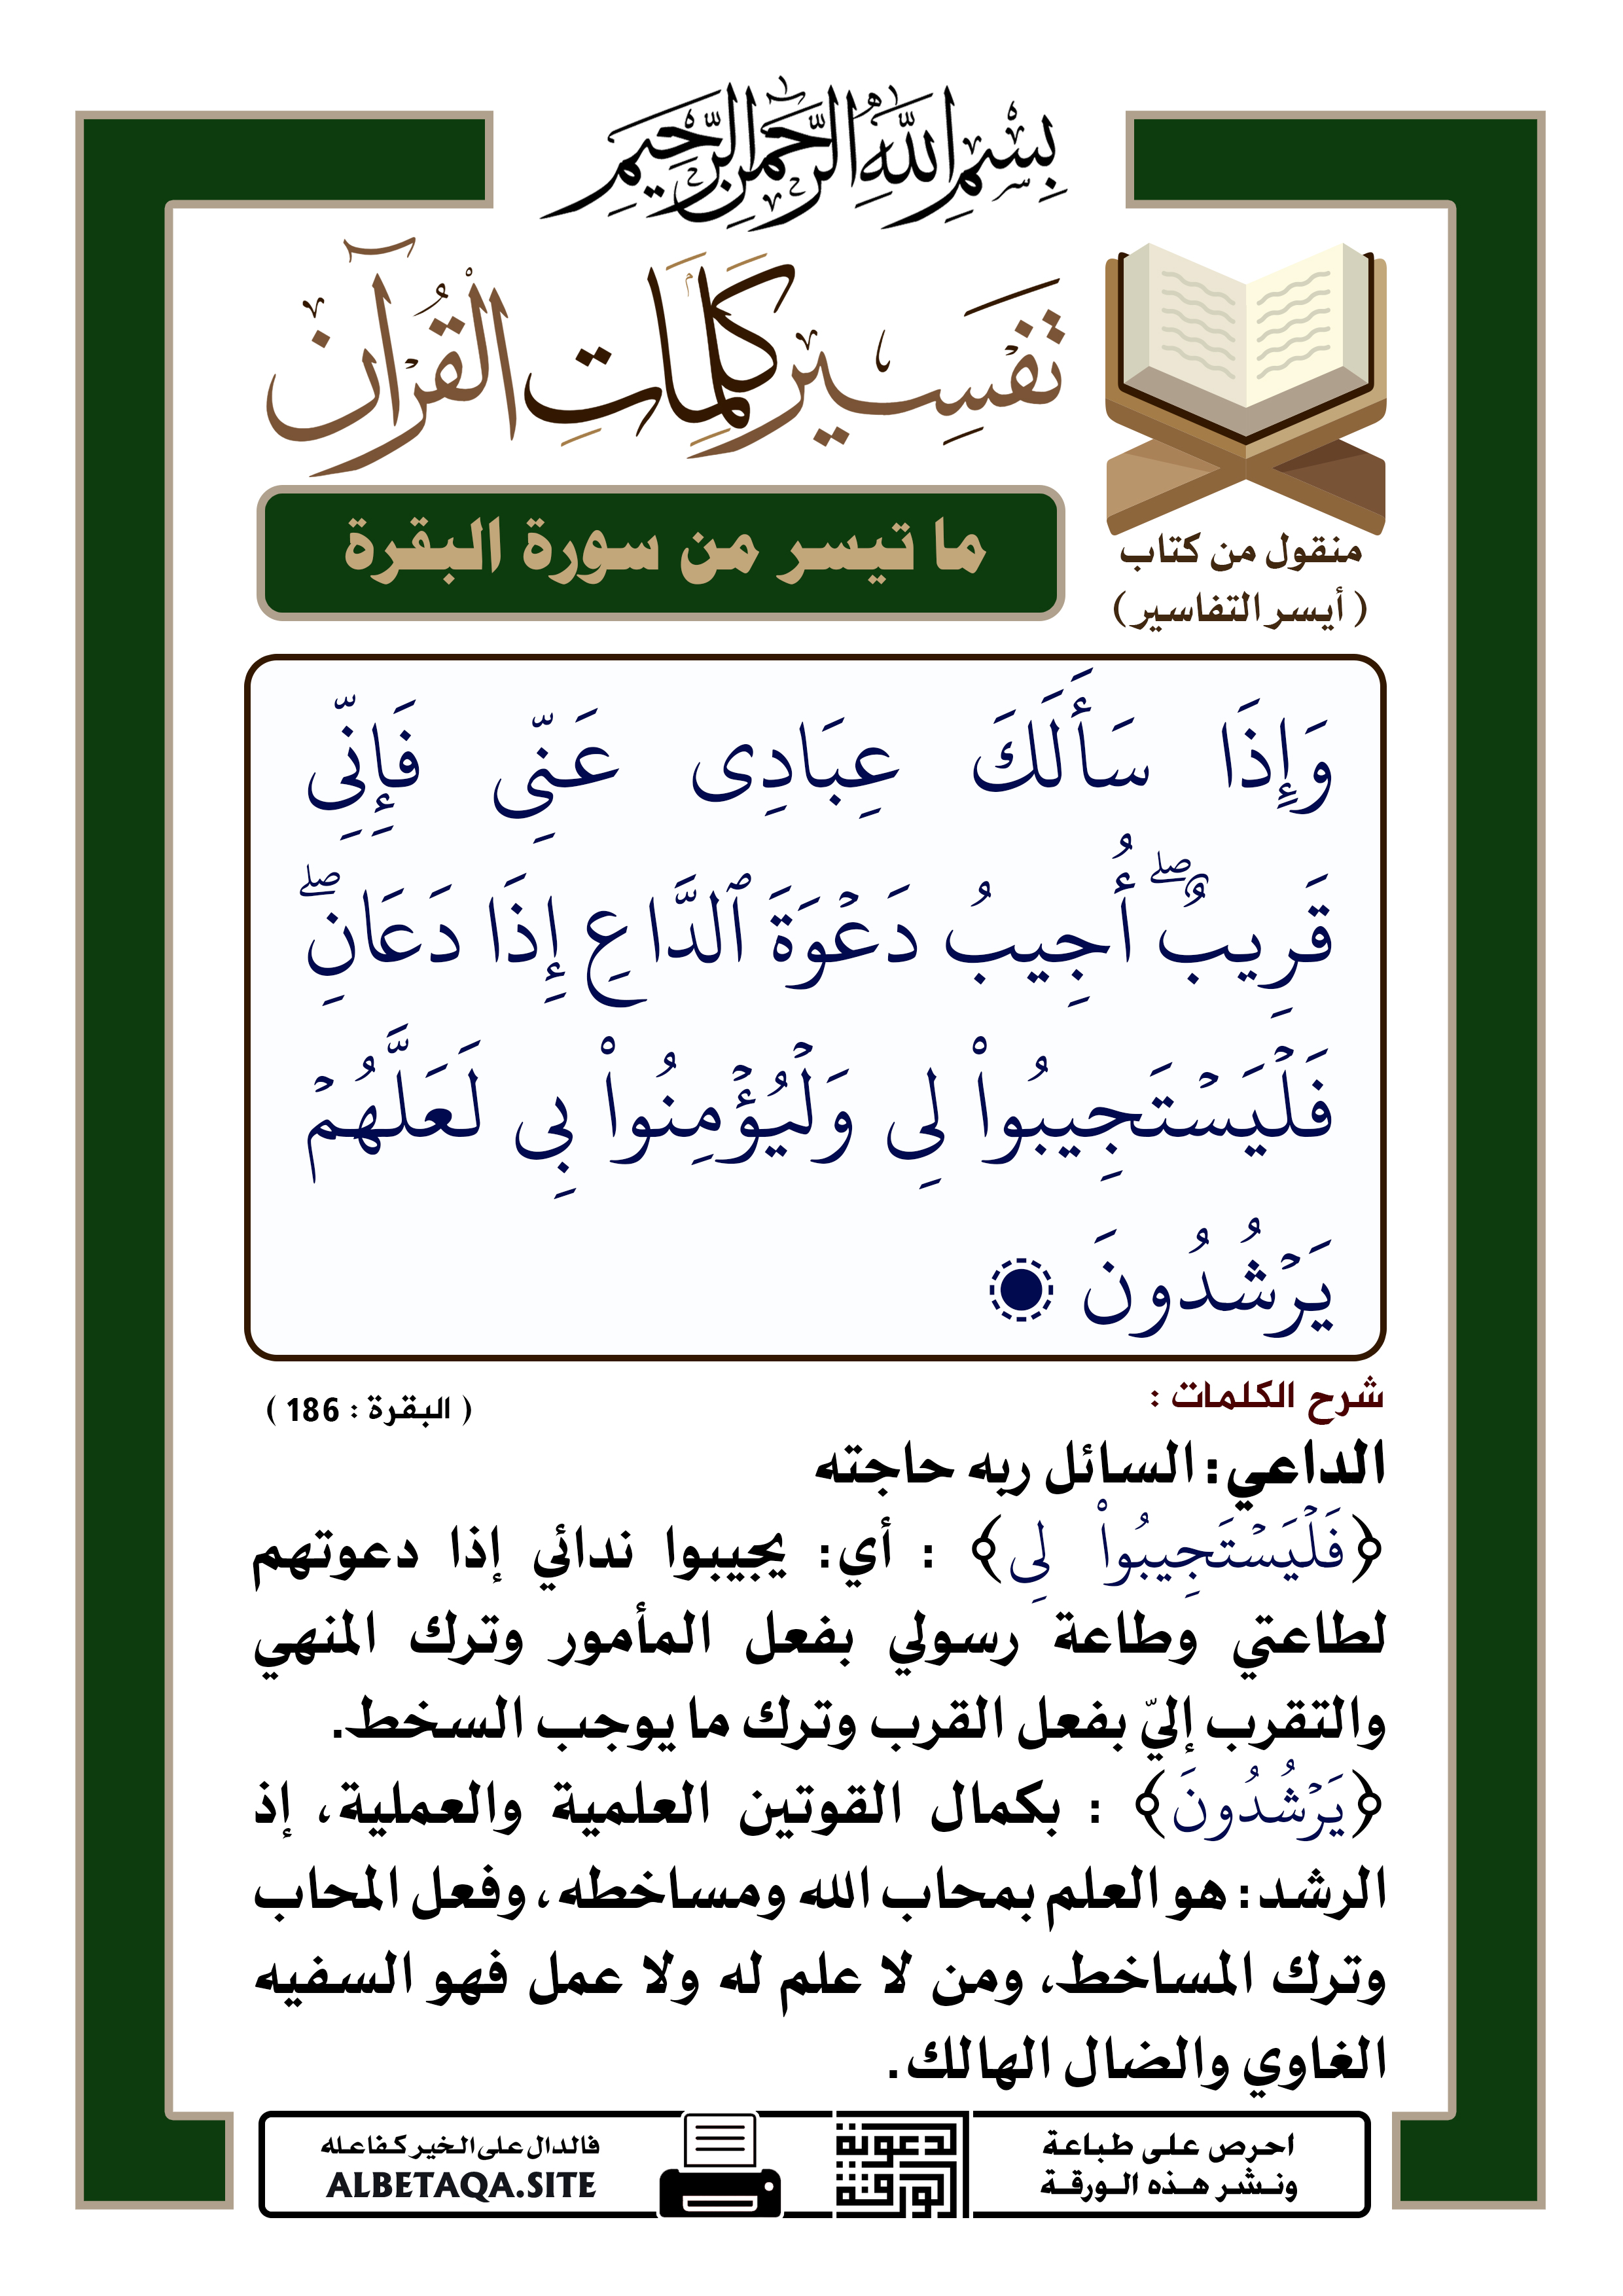 بِسْمِ اللَّهِ الرَّحْمَٰنِ الرَّحِيمِ
تَفْسِير كَلِمَاتِ الْقُرْآن
منقول من كتاب
( أيسر التفاسير )
ما تيسر من سورة البقرة
وَإِذَا سَأَلَكَ عِبَادِى عَنِّى فَإِنِّى
قَرِيبٌۖ أُجِيبُ دَعْوَةَ ٱلدَّاعِ إِذَا دَعَانِۖ
فَلْيَسْتَجِيبُوا۟ لِى وَلْيُؤْمِنُوا۟ بِى لَعَلَّهُمْ
يَرْشُدُونَ
شرح الكلمات :
( البقرة : 186 )
الداعي: السائل ربه حاجته
﴿فَلْيَسْتَجِيبُوا۟ لِى﴾ : أي: يجيبوا ندائي إذا دعوتهم
لطاعتي وطاعة رسولي بفعل المأمور وترك المنهي
والتقرب إليّ بفعل القرب وترك ما يوجب السخط.
﴿يَرْشُدُونَ﴾ : بكمال القوتين العلمية والعملية، إذ
الرشد: هو العلم بمحاب الله ومساخطه، وفعل المحاب
وترك المساخط، ومن لا علم له ولا عمل فهو السفيه
الغاوي والضال الهالك.
احرص على طباعة
ونشر هذه الورقة
الورقة
الدعوية
فالدال على الخير كفاعله
ALBETAQA.SITE